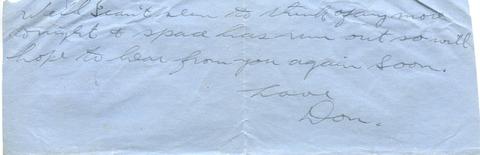 Well I can't seem to think of any more
tonight & space has run out so will
hope to hear from you again soon.
Love
Don.